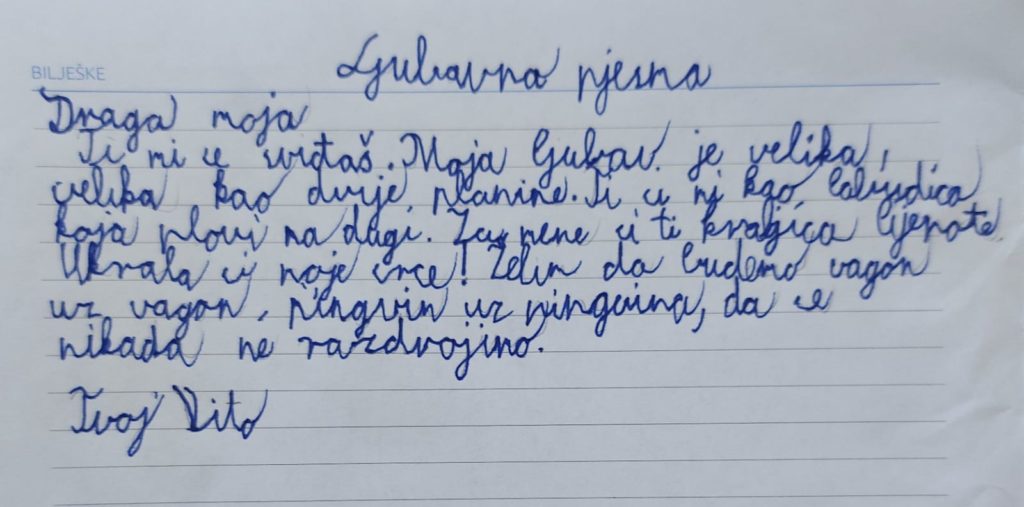 BILJEŠKE
Ljubavna pjesma
Draga moja
Ti mi se sviđaš. Moja ljubav je velika,
velika kao dvije planine. Ti si mi kao labudica
koja plovi na dugi. Za mene si ti kraljica ljepote.
Ukrala si moje srce! Želim da budemo vagon
uz vagon, pingvin uz pingvina, da se
nikada ne razdvojimo.
Tvoj Vito